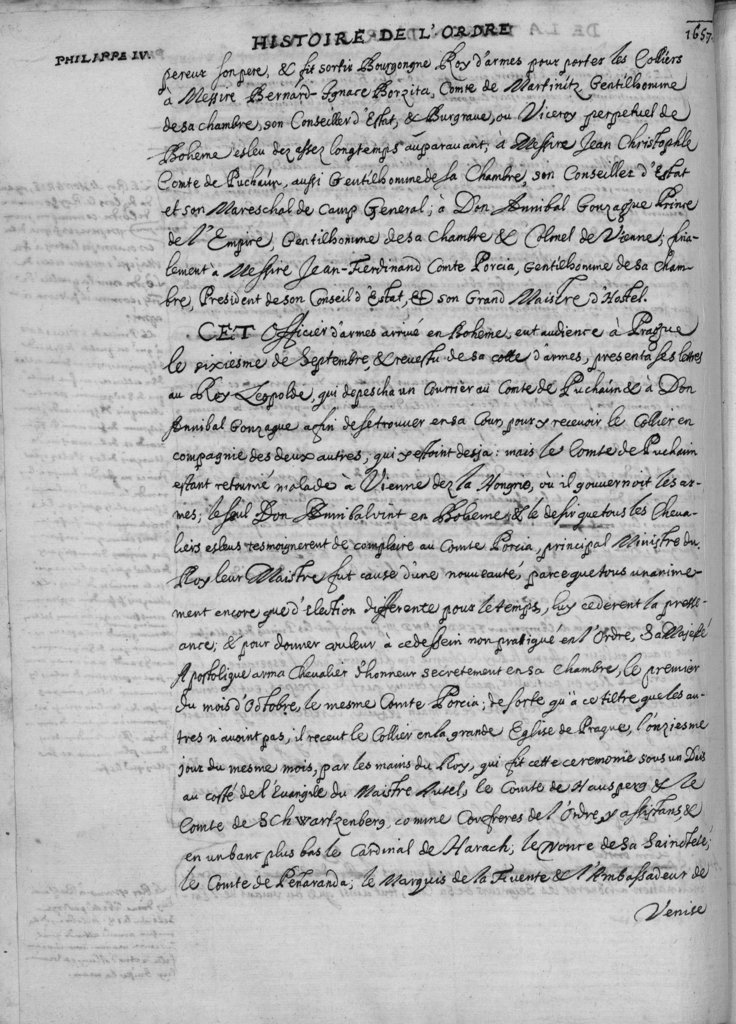 HISTOIRE DE L'ORDRE
1657.
PHILAPPE IV.
pereur son pere, & fit sortir Bourgongne Roy d'armes pour porter les Colliers
à Messire Bernard-Ignace Borzita, Comte de Martinitz Gentilhomme
de sa chambre, son Conseiller d'Estat, & Burgrave, ou Viceroy perpetuel de
Boheme esleu dez assez longtemps auparavant; à Messire Jean Christophle
Comte de Puchaim, aussi Gentilhomme de sa Chambre, son Conseiller d'Estat
et son Mareschal de Camp General; à Don Annibal Gonzague Prince
de l'Empire, Gentilhomme de sa Chambre & Colonel de Vienne; fina-
lement à Messire Jean-Ferdinand Comte Porcia, Gentilhomme de sa Cham-
bre, President de son Conseil d'Estat, & son Grand Maistre d'Hostel.
CET Officier d'armes arrivé en Boheme, eut audience à Prague
le sixiesme de Septembre, & revestu de sa cotte d'armes, presenta ses lettres
au Roy Leopolde, qui depescha un Courrier au Comte de Puchaim & à Don
Annibal Gonzague afin de se trouver en sa Cour, pour y recevoir le Collier en
compagnie des deux autres, qui y estoint desja: mais le Comte de Puchaim
estant retourné malade à Vienne dez la Hongrie, où il gouvernoit les ar-
mes; le seul Don Annibal vint en Boheme; & le desir que tous les Cheva-
liers esleus tesmoignerent de complaire au Comte Porcia, principal Ministre du
Roy leur Maistre fut cause d'une nouveauté, parce que tous unanime-
ment encore que d'election differente pour le temps, luy cederent la presse-
ance; & pour donner couleur à ce dessein non pratiqué en l'Ordre, Sa Majesté
Apostolique arma Chevalier d'honneur secretement en sa Chambre, le premier
du mois d'Octobre, le mesme Comte Porcia; de sorte qu'à ce tiltre, que les au-
tres n'avoint pas, il receut le Collier en la grande Eglise de Prague, l'onziesme
jour du mesme mois, par les mains du Roy, qui fit cette ceremonie sous un Dais
au costé de l'Evangile du Maistre Autel, le Comte de Hausperg & le
Comte de Schwartzenberg, comme Confreres de l'Ordre, y assistans, &
en un banc plus bas le Cardinal de Harach; le Nonce de sa Saincteté;
le Comte de Peñaranda; le Marquis de la Fuente & l'Ambassadeur de
Venise